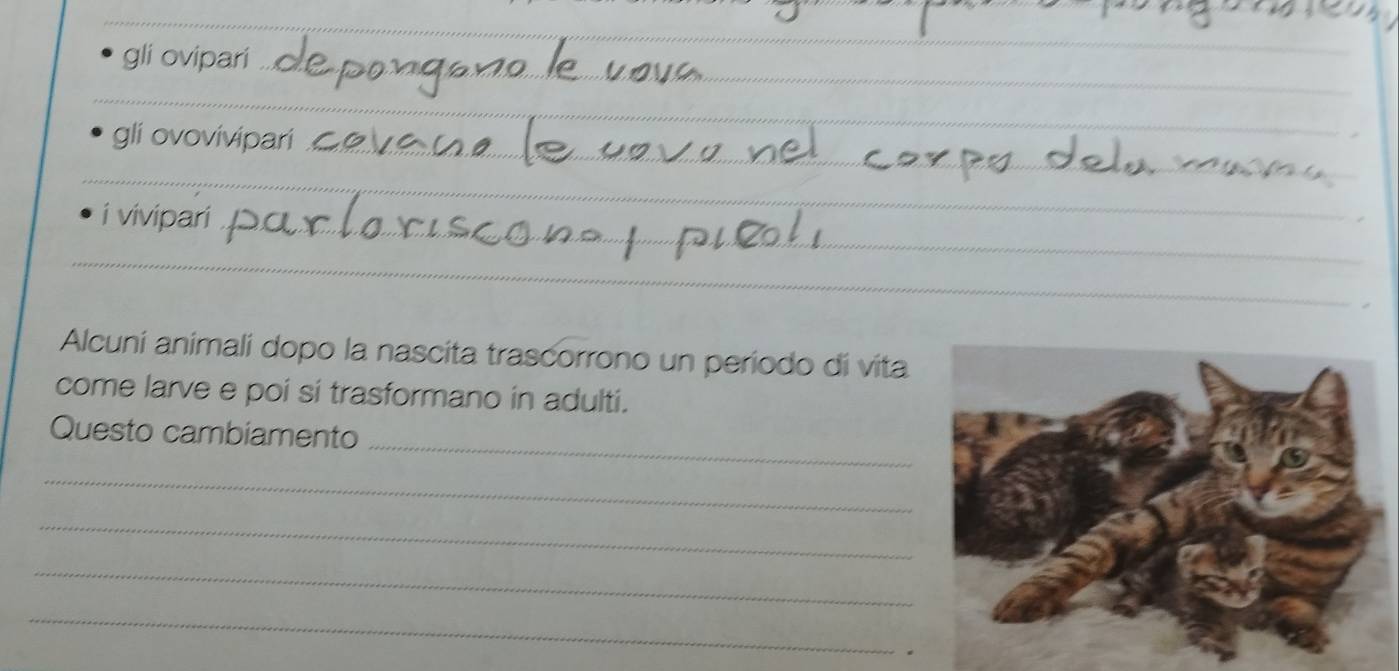 • gli ovipari depongono le uova
• gli ovovivipari covano le uova nel corpo dela mama
• i vivipari partoriscono i picoli
Alcuni animali dopo la nascita trascorrono un periodo di vita
come larve e poi si trasformano in adulti.
Questo cambiamento